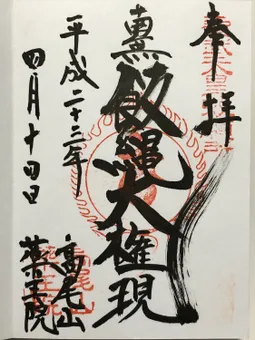 奉拝
奠
飯縄大権現
平成二十三年
四月十四日
高尾山
薬王院